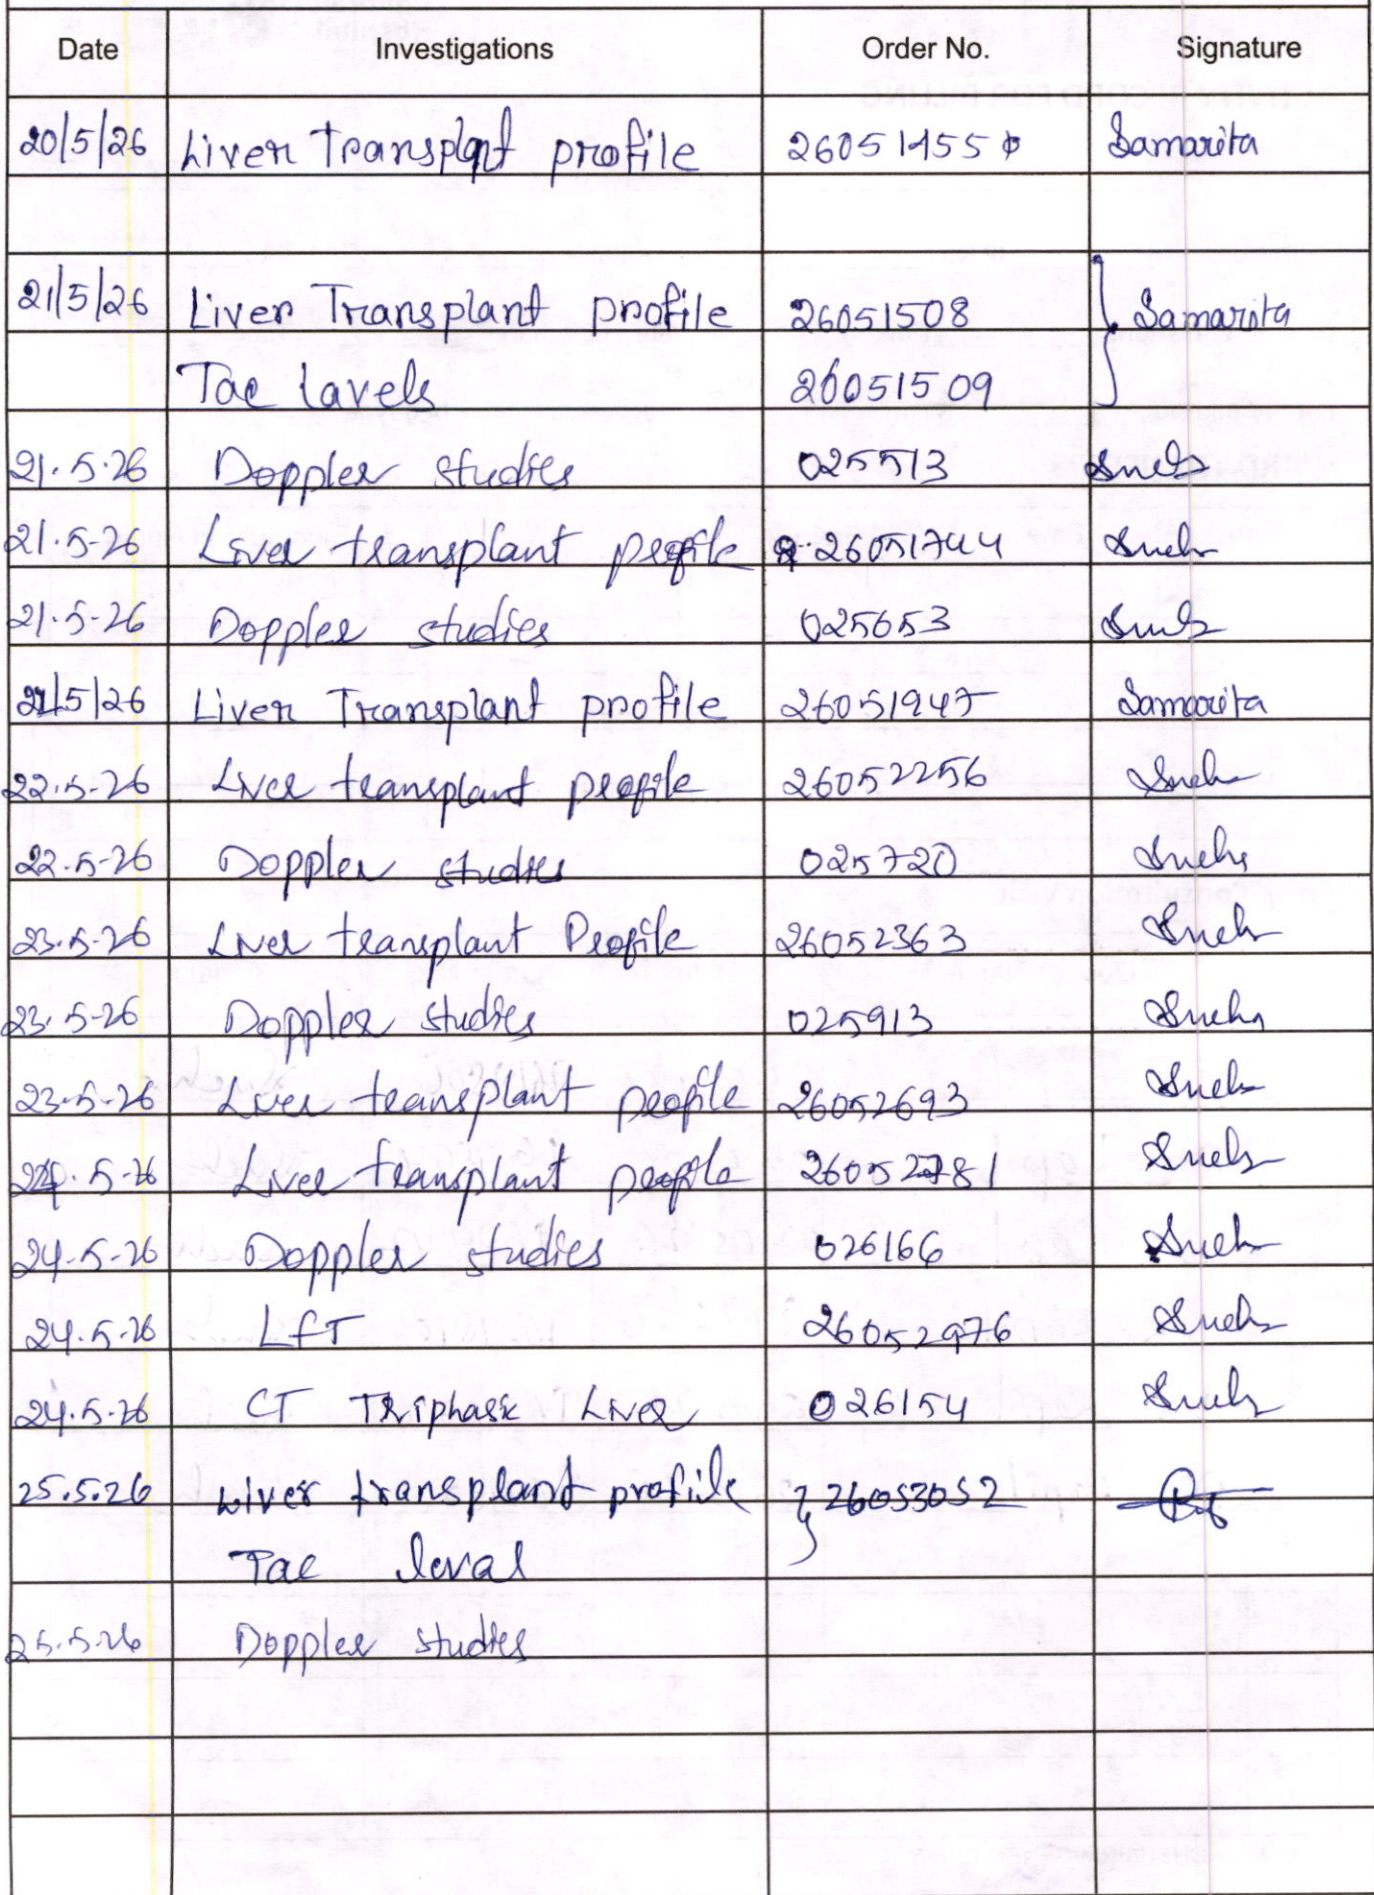 Date Investigations Order No. Signature
20/5/26 Liver Transplant profile 26051455 Samarita
21/5/26 Liver Transplant profile 26051508 } Samarita
Tac lavels 26051509
21.5.26 Doppler studies 025513
21.5-26 Liver transplant profile 26051744
21.5-26 Doppler studies 025653
21/5/26 Liver Transplant profile 26051947 Samarita
22.5-26 Liver transplant profile 26052256
22.5-26 Doppler studies 025720
23.5-26 Liver transplant Profile 26052363
23.5-26 Doppler studies 025913
23.5-26 Liver transplant profile 26052693
24.5-26 Liver transplant profile 26052781
24.5-26 Doppler studies 026166
24.5-26 LFT 26052976
24.5-26 CT Triphase Liver 026154
25.5.26 Liver transplant profile } 26053052
Tac leval
25.5.26 Doppler studies